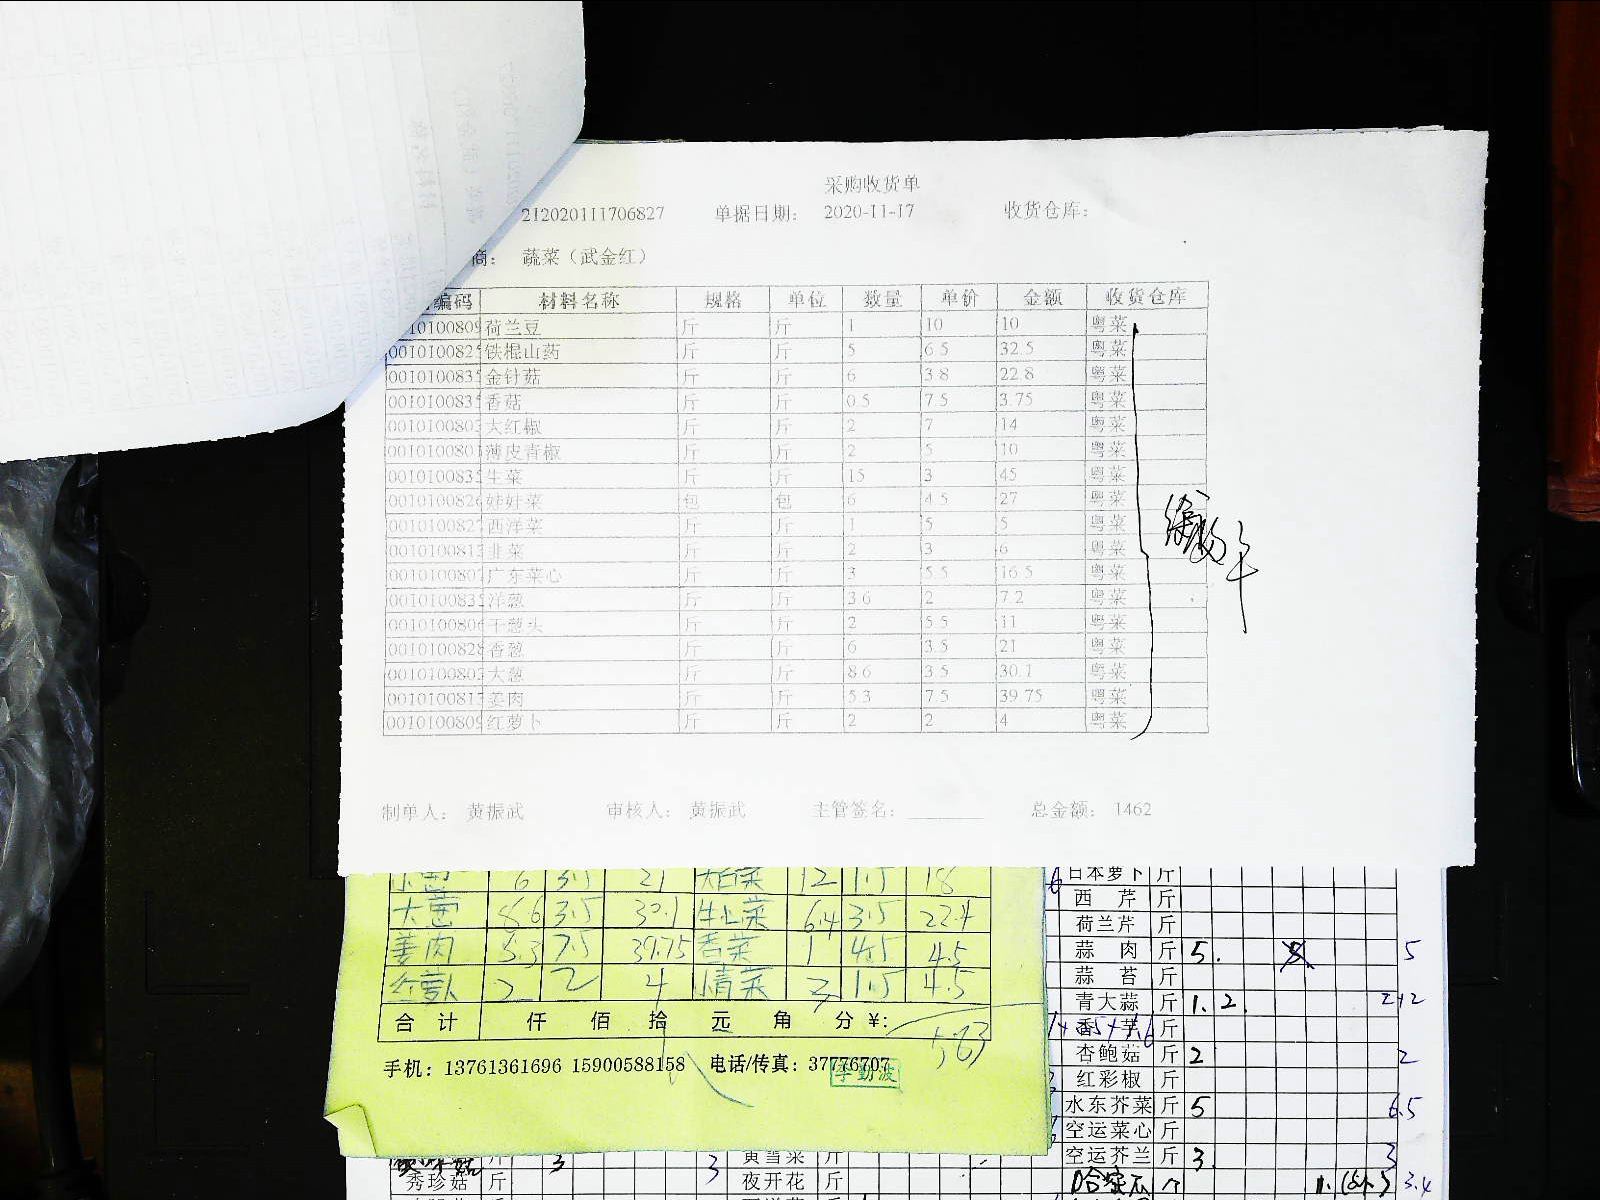 采购收货单
212020111706827 单据日期： 2020-11-17 收货仓库：
商： 蔬菜（武金红）
编码 材料名称 规格 单位 数量 单价 金额 收货仓库
荷兰豆 斤 斤 1 10 10 粤菜
铁棍山药 斤 斤 5 6.5 32.5 粤菜
金针菇 斤 斤 6 3.8 22.8 粤菜
香菇 斤 斤 0.5 7.5 3.75 粤菜
大红椒 斤 斤 2 7 14 粤菜
薄皮青椒 斤 斤 2 5 10 粤菜
生菜 斤 斤 15 3 45 粤菜
娃娃菜 包 包 6 4.5 27 粤菜
西洋菜 斤 斤 1 5 5 粤菜
韭菜 斤 斤 2 3 6 粤菜
广东菜心 斤 斤 3 5.5 16.5 粤菜
洋葱 斤 斤 3.6 2 7.2 粤菜
干葱头 斤 斤 2 5.5 11 粤菜
香葱 斤 斤 6 3.5 21 粤菜
大葱 斤 斤 8.6 3.5 30.1 粤菜
姜肉 斤 斤 5.3 7.5 39.75 粤菜
红萝卜 斤 斤 2 2 4 粤菜
制单人： 黄振武 审核人： 黄振武 主管签名： 总金额： 1462
小葱 6 3.5 21 大白菜 12 1.5 18
大葱 8.6 3.5 30.1 6.4 3.5 22.4
姜肉 5.3 7.5 39.75 香菜 1 4.5 4.5
红萝卜 2 2 4 3 1.5 4.5
合计 仟 佰 拾 元 角 分 ¥:
手机：13761361696 15900588158 电话/传真：37776707
李勤波
日本萝卜 斤
西芹 斤
荷兰芹 斤
蒜肉 斤 5. 5
蒜苔 斤
青大蒜 斤 1.2. 2+2
香芋 斤
杏鲍菇 斤 2 2
红彩椒 斤
水东芥菜 斤 5 6.5
空运菜心 斤
空运芥兰 斤 3. 3
斤 3 3 黄雪菜 斤
秀珍菇 斤 夜开花 斤
哈密瓜 个 3.4